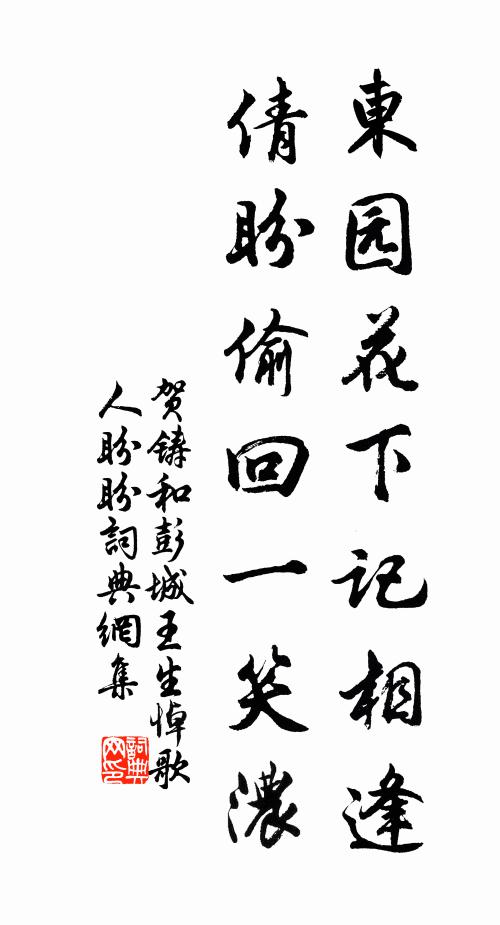 東园花下记相逢
倩盼偷回一笑濃
贺鑄和彭城王生悼歌
人盼盼詞典網集
詞典
网印